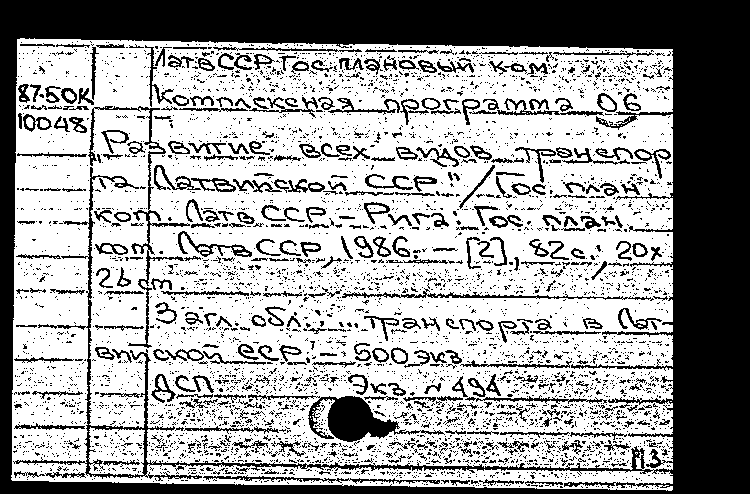 ЛатвССР. Гос. плановый ком.
87-50К Комплексная программа 06
10048
„Развитие всех видов транспор
та Латвийской ССР" / Гос. план.
ком. Латв ССР. – Рига: Гос. план.
ком. Латв ССР, 1986. – [2], 82 с.; 20х
26 см.
Загл. обл.: ...транспорта в Лат-
вийской ССР. – 500 экз.
ДСП. Экз. № 494.
МЗ